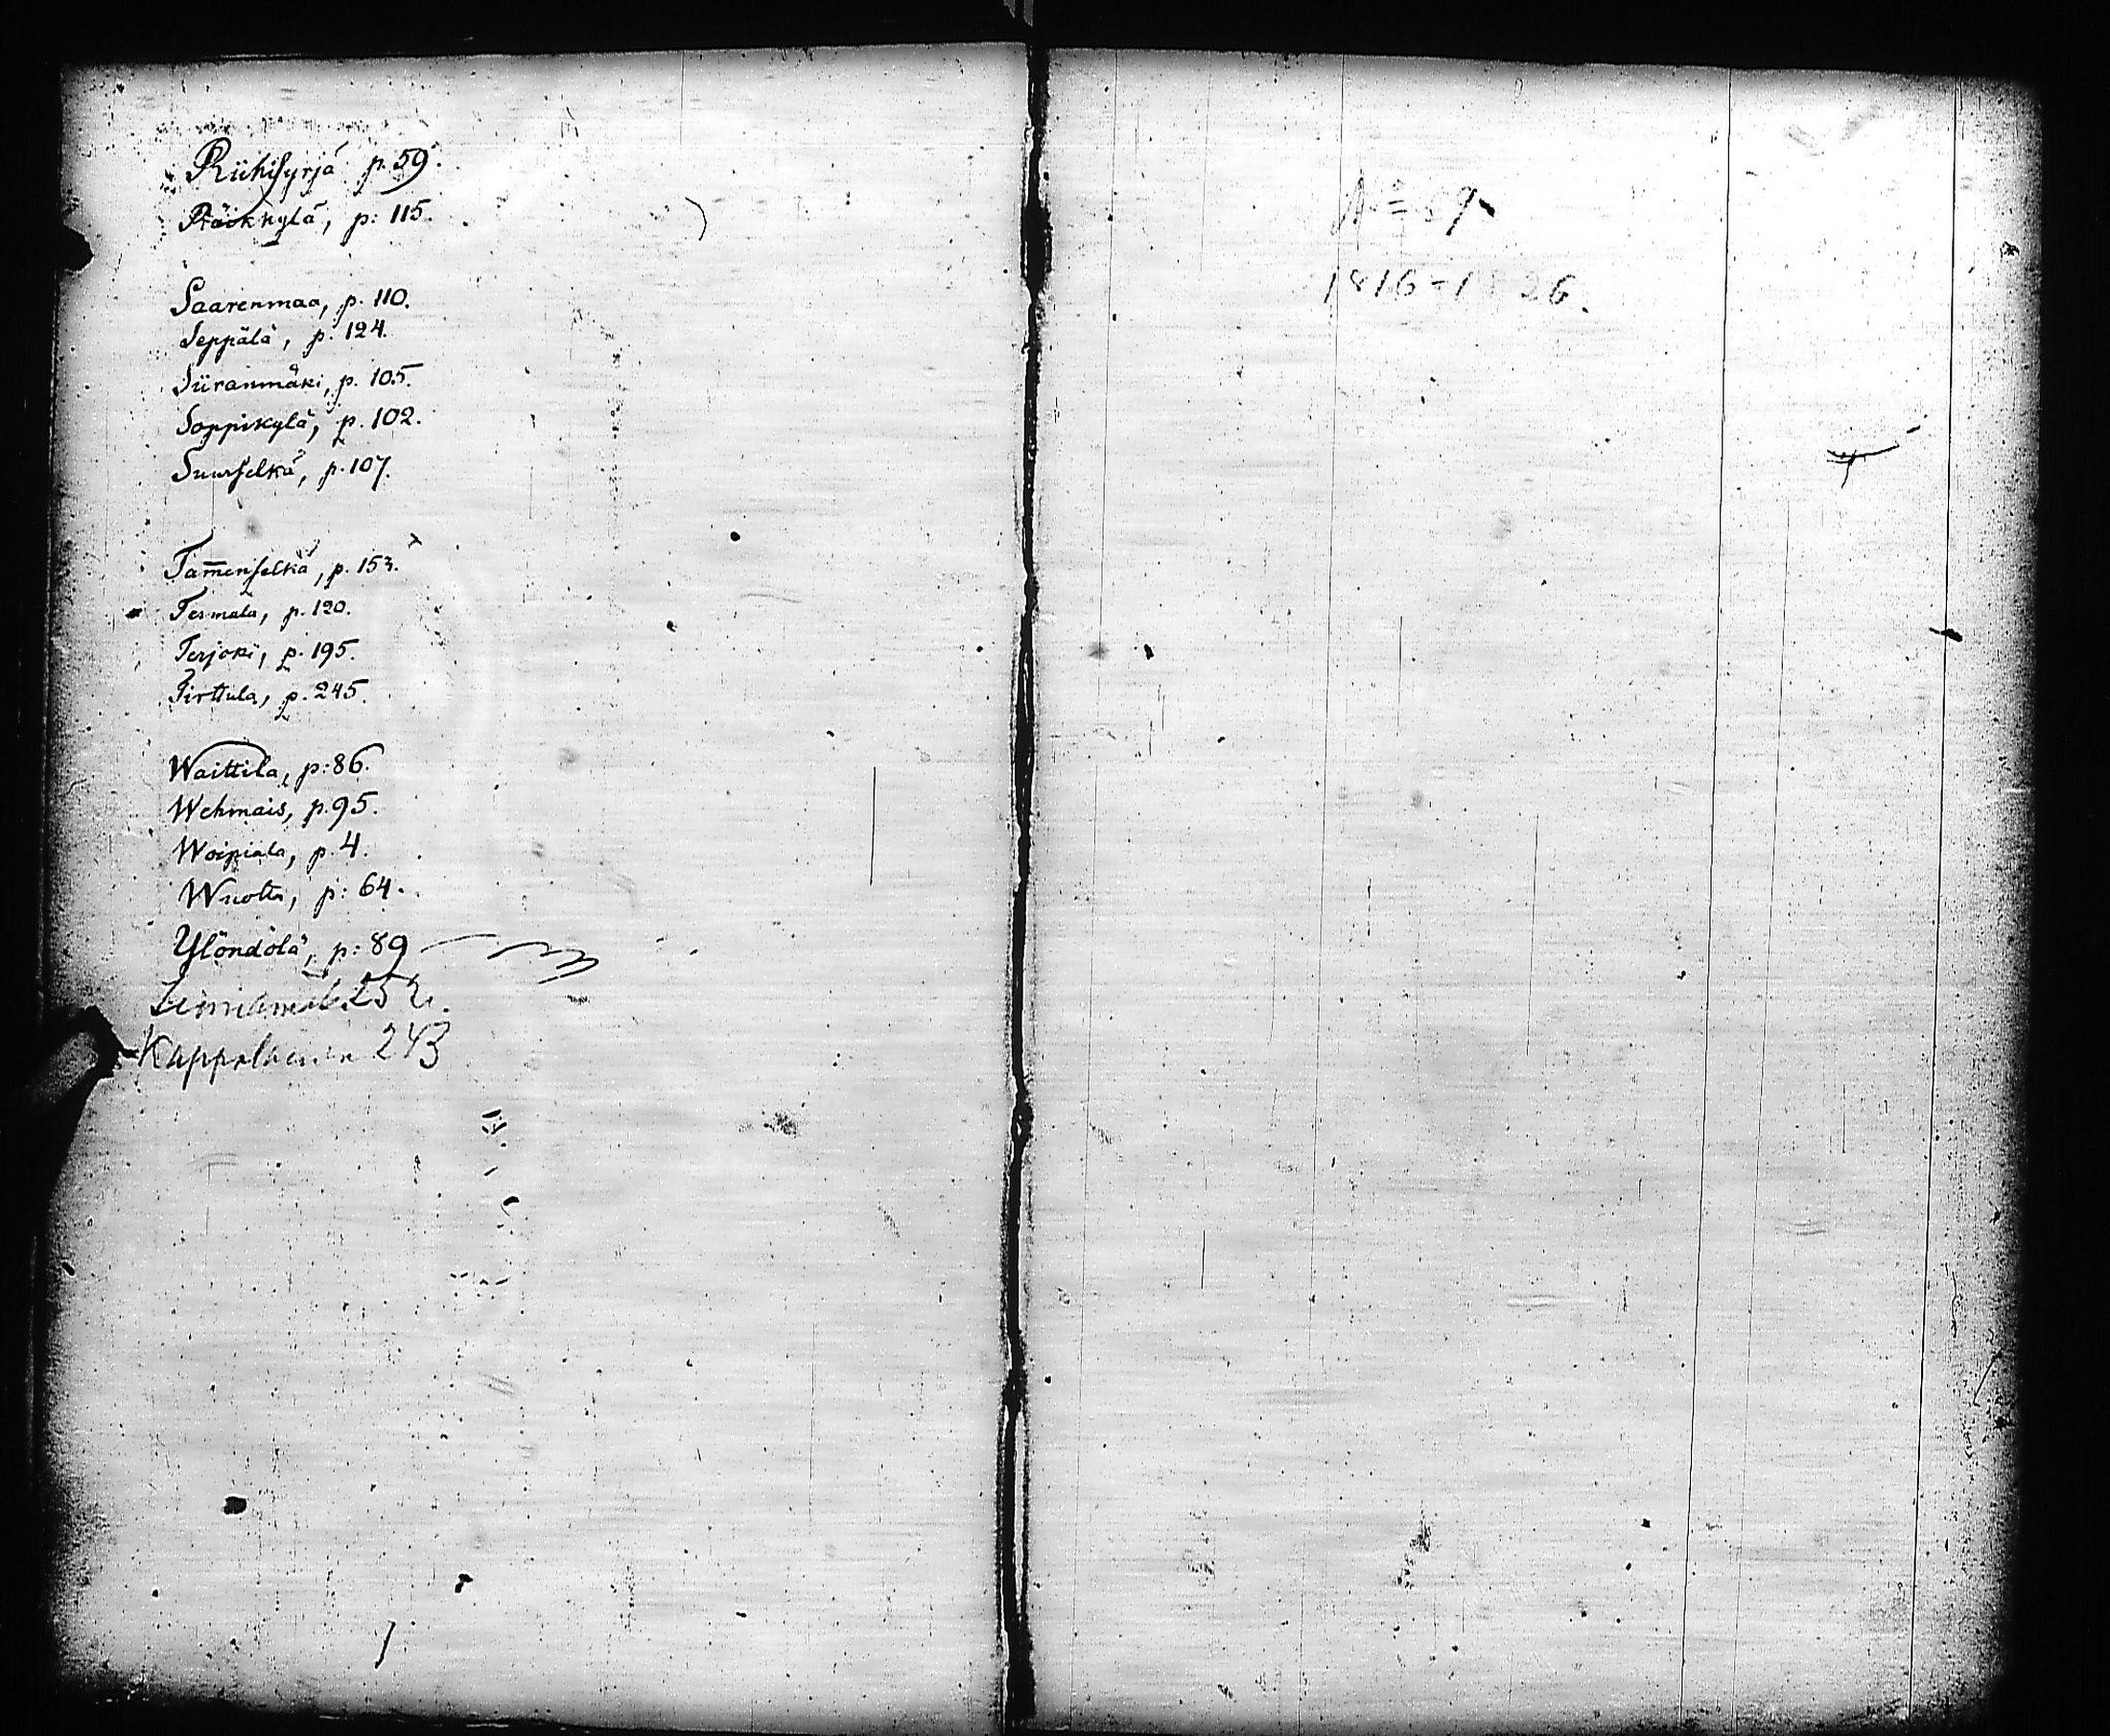 Riihisyrjä p. 59.
Räikkylä, p: 115.
Saarenmaa, p. 110.
Seppälä, p. 124.
Siiranmäki, p. 105.
Soppikylä, p. 102.
Suurselkä, p. 107.
Tam̅enselkä, p. 153.
Termala, p. 120.
Terjoki, p. 195.
Tirttula, p. 245.
Waittila, p: 86.
Wehmais, p. 95.
Woipiala, p. 4.
Wuotta, p: 64.
Ylöndölä, p: 89
252.
Kappelainen 243
1816-1826.